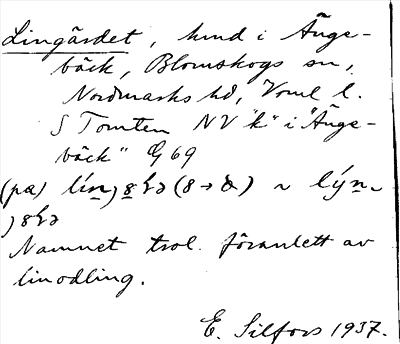 Lingärdet, hmd i Änge-
bäck, Blomskogs sn,
Nordmarks hd, Vrml l.
S Tomten NV "k" i "Änge-
bäck" G 69
(pœ)
Namnet trol. föranlett av
linodling.
E. Silfors 1937.